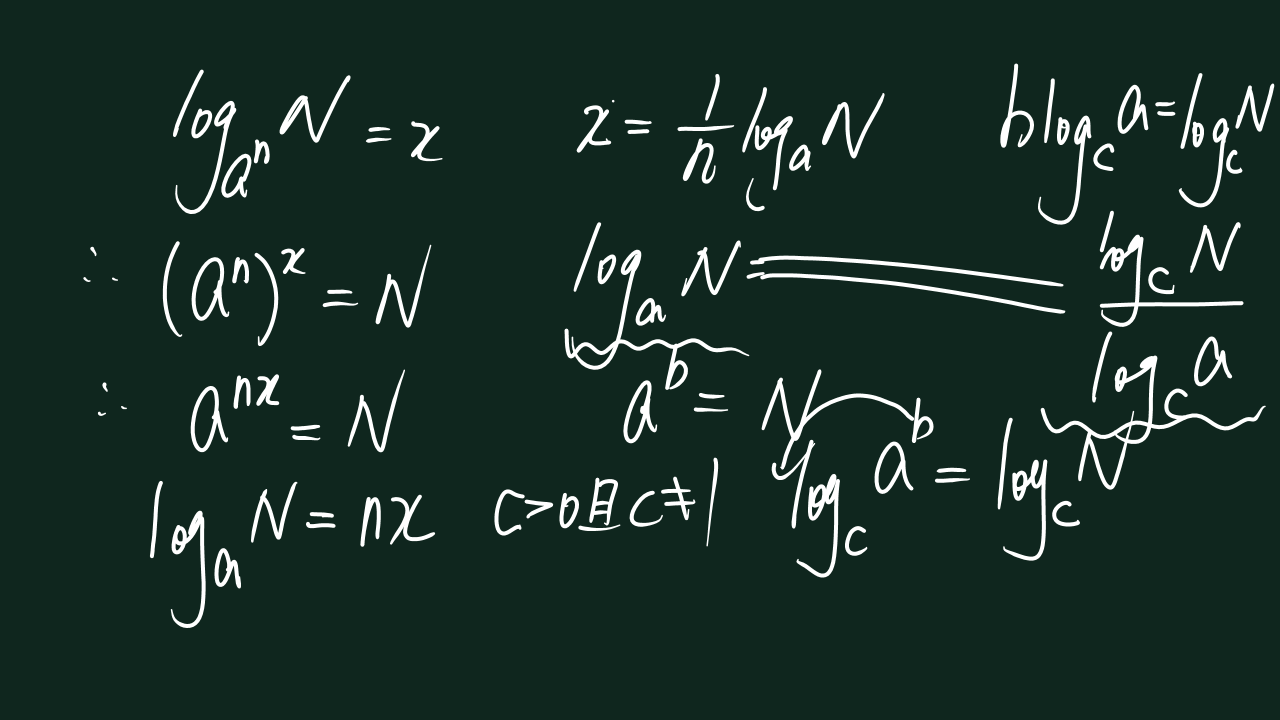 log_{a^n} N = x
∴ (a^n)^x = N
∴ a^{nx} = N
log_a N = nx
x = \frac{1}{n} log_a N
log_a N = \frac{log_c N}{log_c a}
a^b = N
c>0且c≠1
log_c a^b = log_c N
b log_c a = log_c N